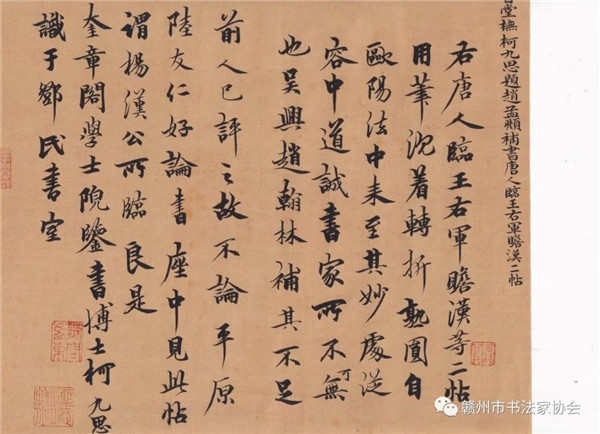 堂橅柯九思題趙孟頫補書唐人臨王右軍瞻漢二帖
右唐人臨王右軍瞻漢等二帖
用筆沉着轉折熟圓自
歐陽法中来至其妙處从
容中道誠書家所不可無
也吴興趙翰林補其不足
前人已評之故不論平原
陸友仁好論書座中見此帖
謂楊漢公所臨良是
奎章閣學士院鑒書博士柯九思
識于鄧民書室
赣州市书法家协会